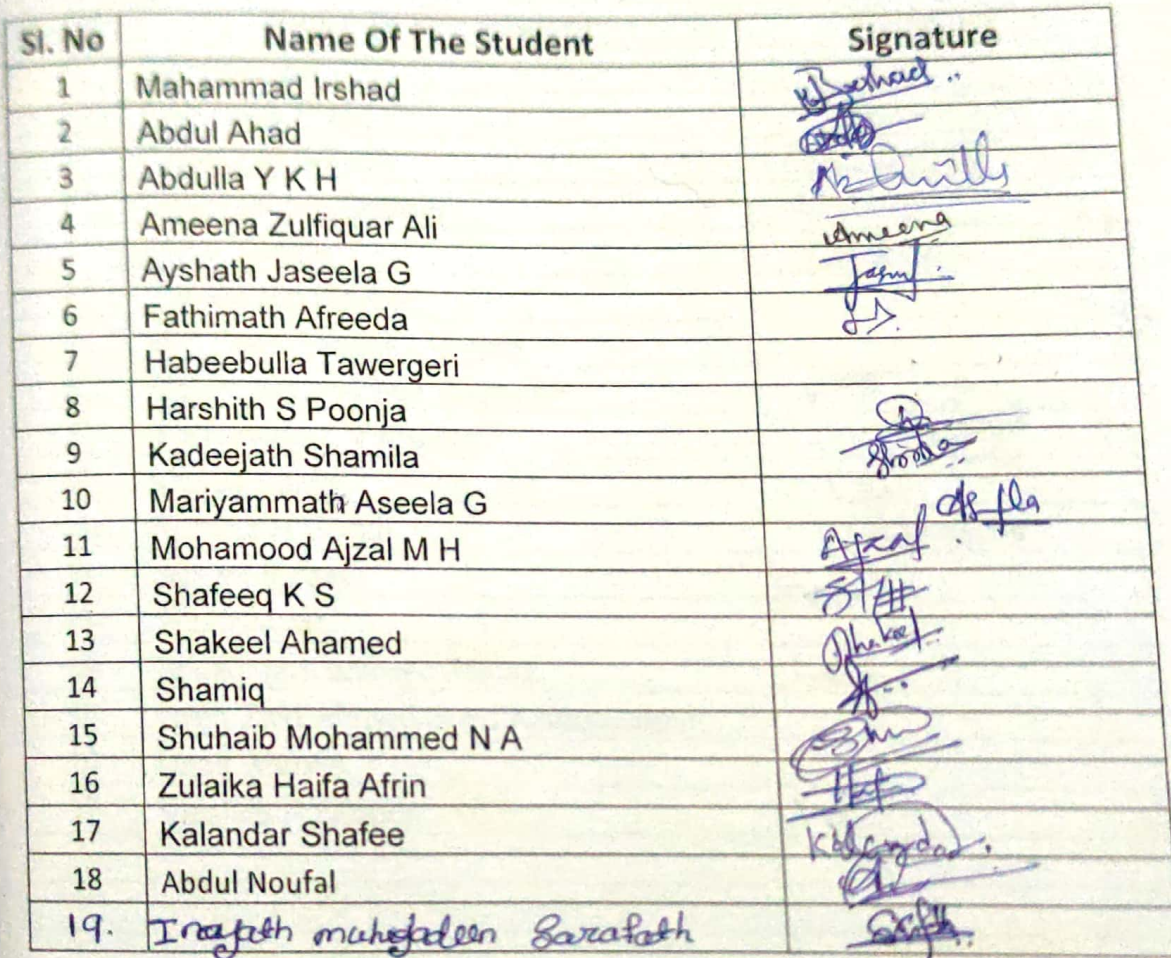 Sl. No Name Of The Student Signature
1 Mahammad Irshad
2 Abdul Ahad
3 Abdulla Y K H
4 Ameena Zulfiquar Ali Ameena
5 Ayshath Jaseela G
6 Fathimath Afreeda
7 Habeebulla Tawergeri
8 Harshith S Poonja
9 Kadeejath Shamila
10 Mariyammath Aseela G
11 Mohamood Ajzal M H Ajzal
12 Shafeeq K S
13 Shakeel Ahamed Shakeel
14 Shamiq
15 Shuhaib Mohammed N A
16 Zulaika Haifa Afrin
17 Kalandar Shafee Kalandar
18 Abdul Noufal
19. Inayath Sarafath